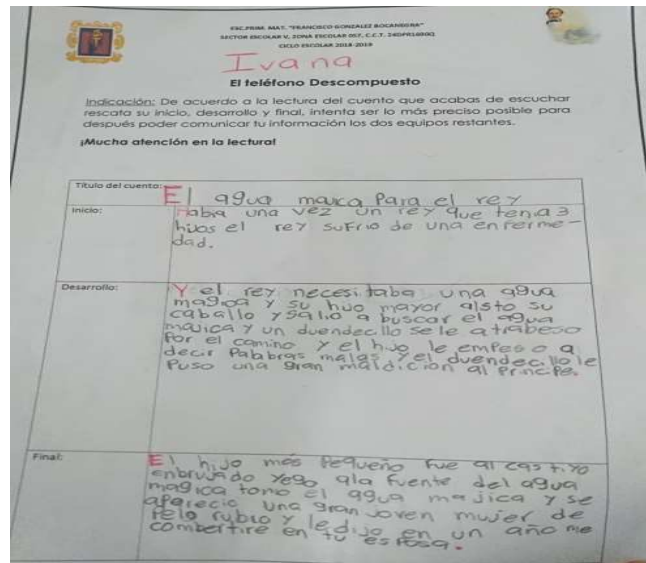 ESC.PRIM. MAT. "FRANCISCO GONZALEZ BOCANEGRA"
SECTOR ESCOLAR V, ZONA ESCOLAR 057, C.C.T.
CICLO ESCOLAR 2018-2019
Ivana
El teléfono Descompuesto
Indicación: De acuerdo a la lectura del cuento que acabas de escuchar
rescata su inicio, desarrollo y final, intenta ser lo más preciso posible para
después poder comunicar tu información los dos equipos restantes.
¡Mucha atención en la lectura!
Título del cuento: El agua maica Para el rey
Inicio: Habia una vez un rey que tenia 3
hijos el rey sufrio de una enferme-
dad.
Desarrollo: Y el rey necesitaba una agua
magica y su hijo mayor alsto su
caballo y salio a buscar el agua
majica y un duendecillo se le atrabeso
por el camino y el hijo le empeso a
decir Palabras malas y el duendecillo le
Puso una gran maldicion al Principe.
Final: El hijo más Pequeño fue al castiyo
enbrujado yego ala fuente del agua
magica tomo el agua majica y se
aparecio una gran joven mujer de
Pelo rubio y le dijo en un año me
combertire en tu esposa.